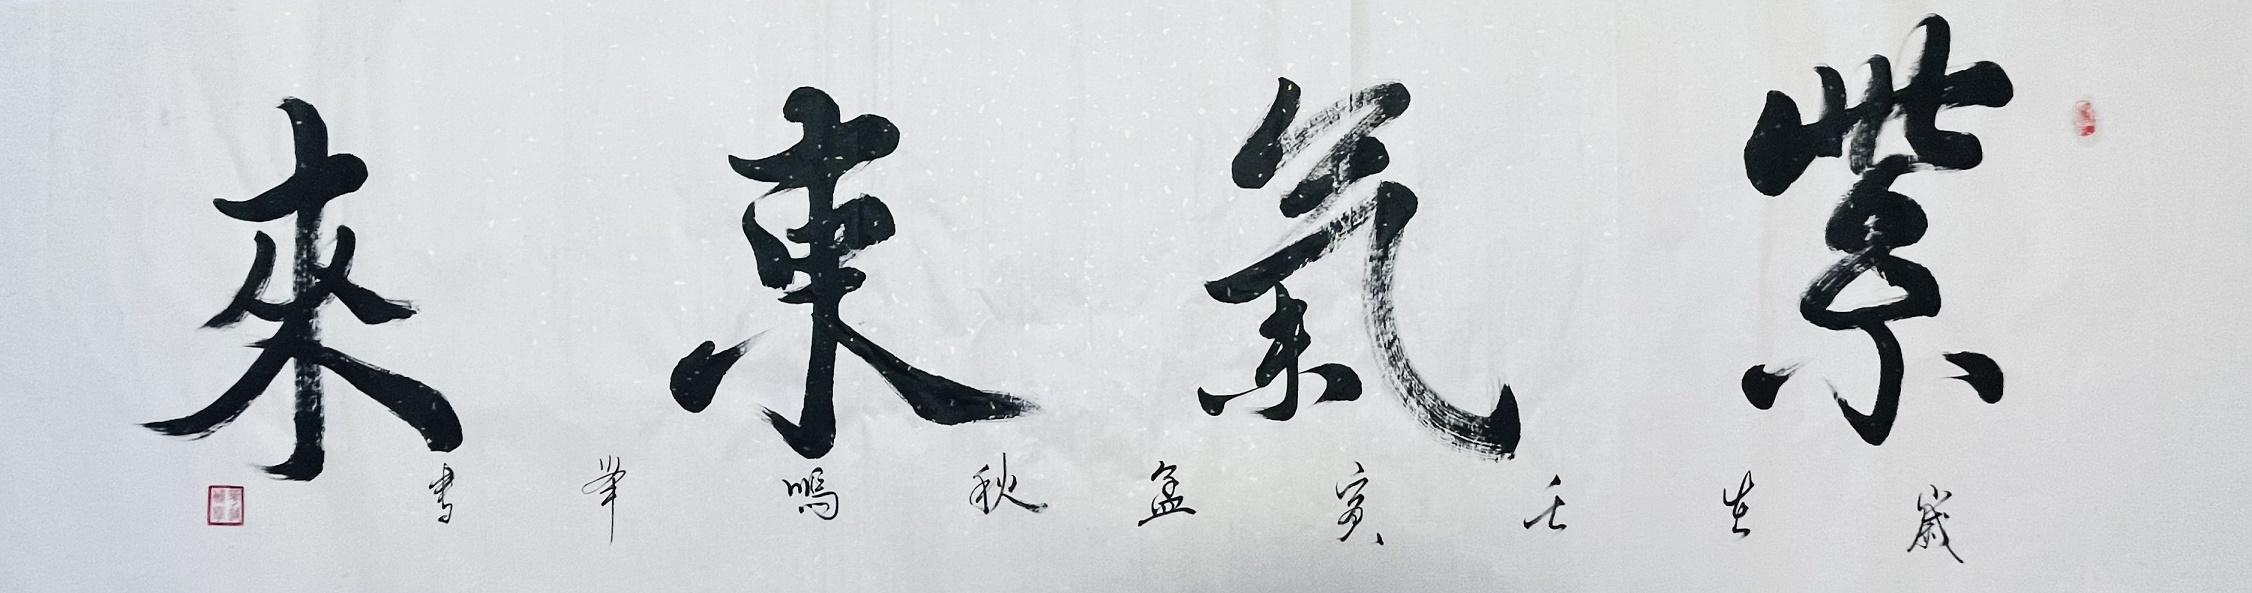 紫氣東來
歲在壬寅孟秋鳴筆書